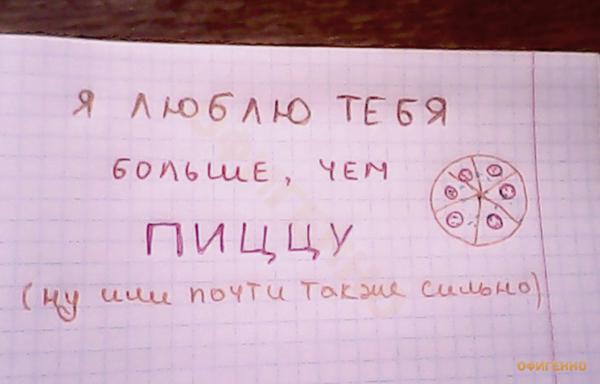 Я ЛЮБЛЮ ТЕБЯ
БОЛЬШЕ, ЧЕМ
ПИЦЦУ
(ну или почти также сильно)
ОФИГЕННО